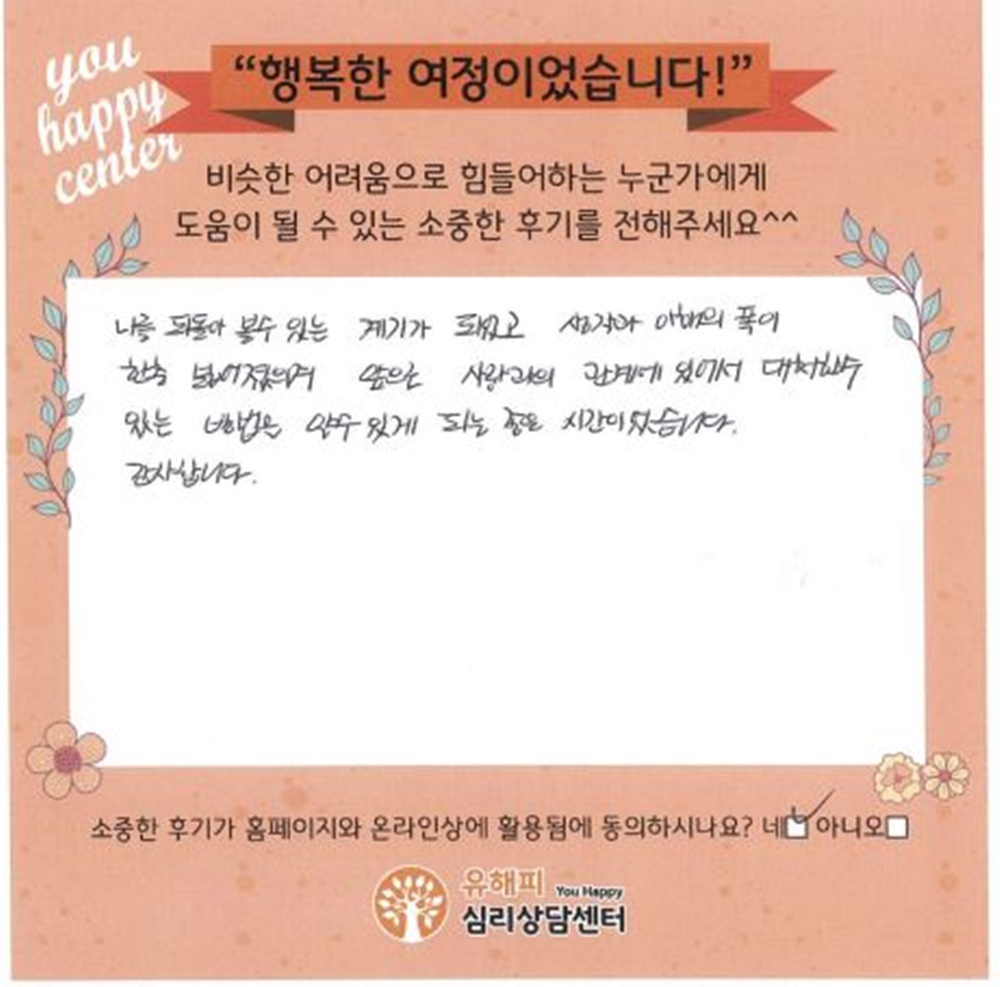 you
happy
center
“행복한 여정이었습니다!”
비슷한 어려움으로 힘들어하는 누군가에게
도움이 될 수 있는 소중한 후기를 전해주세요^^
나를 되돌아 볼수 있는 계기가 되었고 생각과 이해의 폭이
한층 넓어졌으며 앞으로 사람과의 관계에 있어서 대처할수
있는 방법을 알수 있게 되는 좋은 시간이었습니다.
감사합니다.
소중한 후기가 홈페이지와 온라인상에 활용됨에 동의하시나요? 네 아니오
유해피 You Happy
심리상담센터